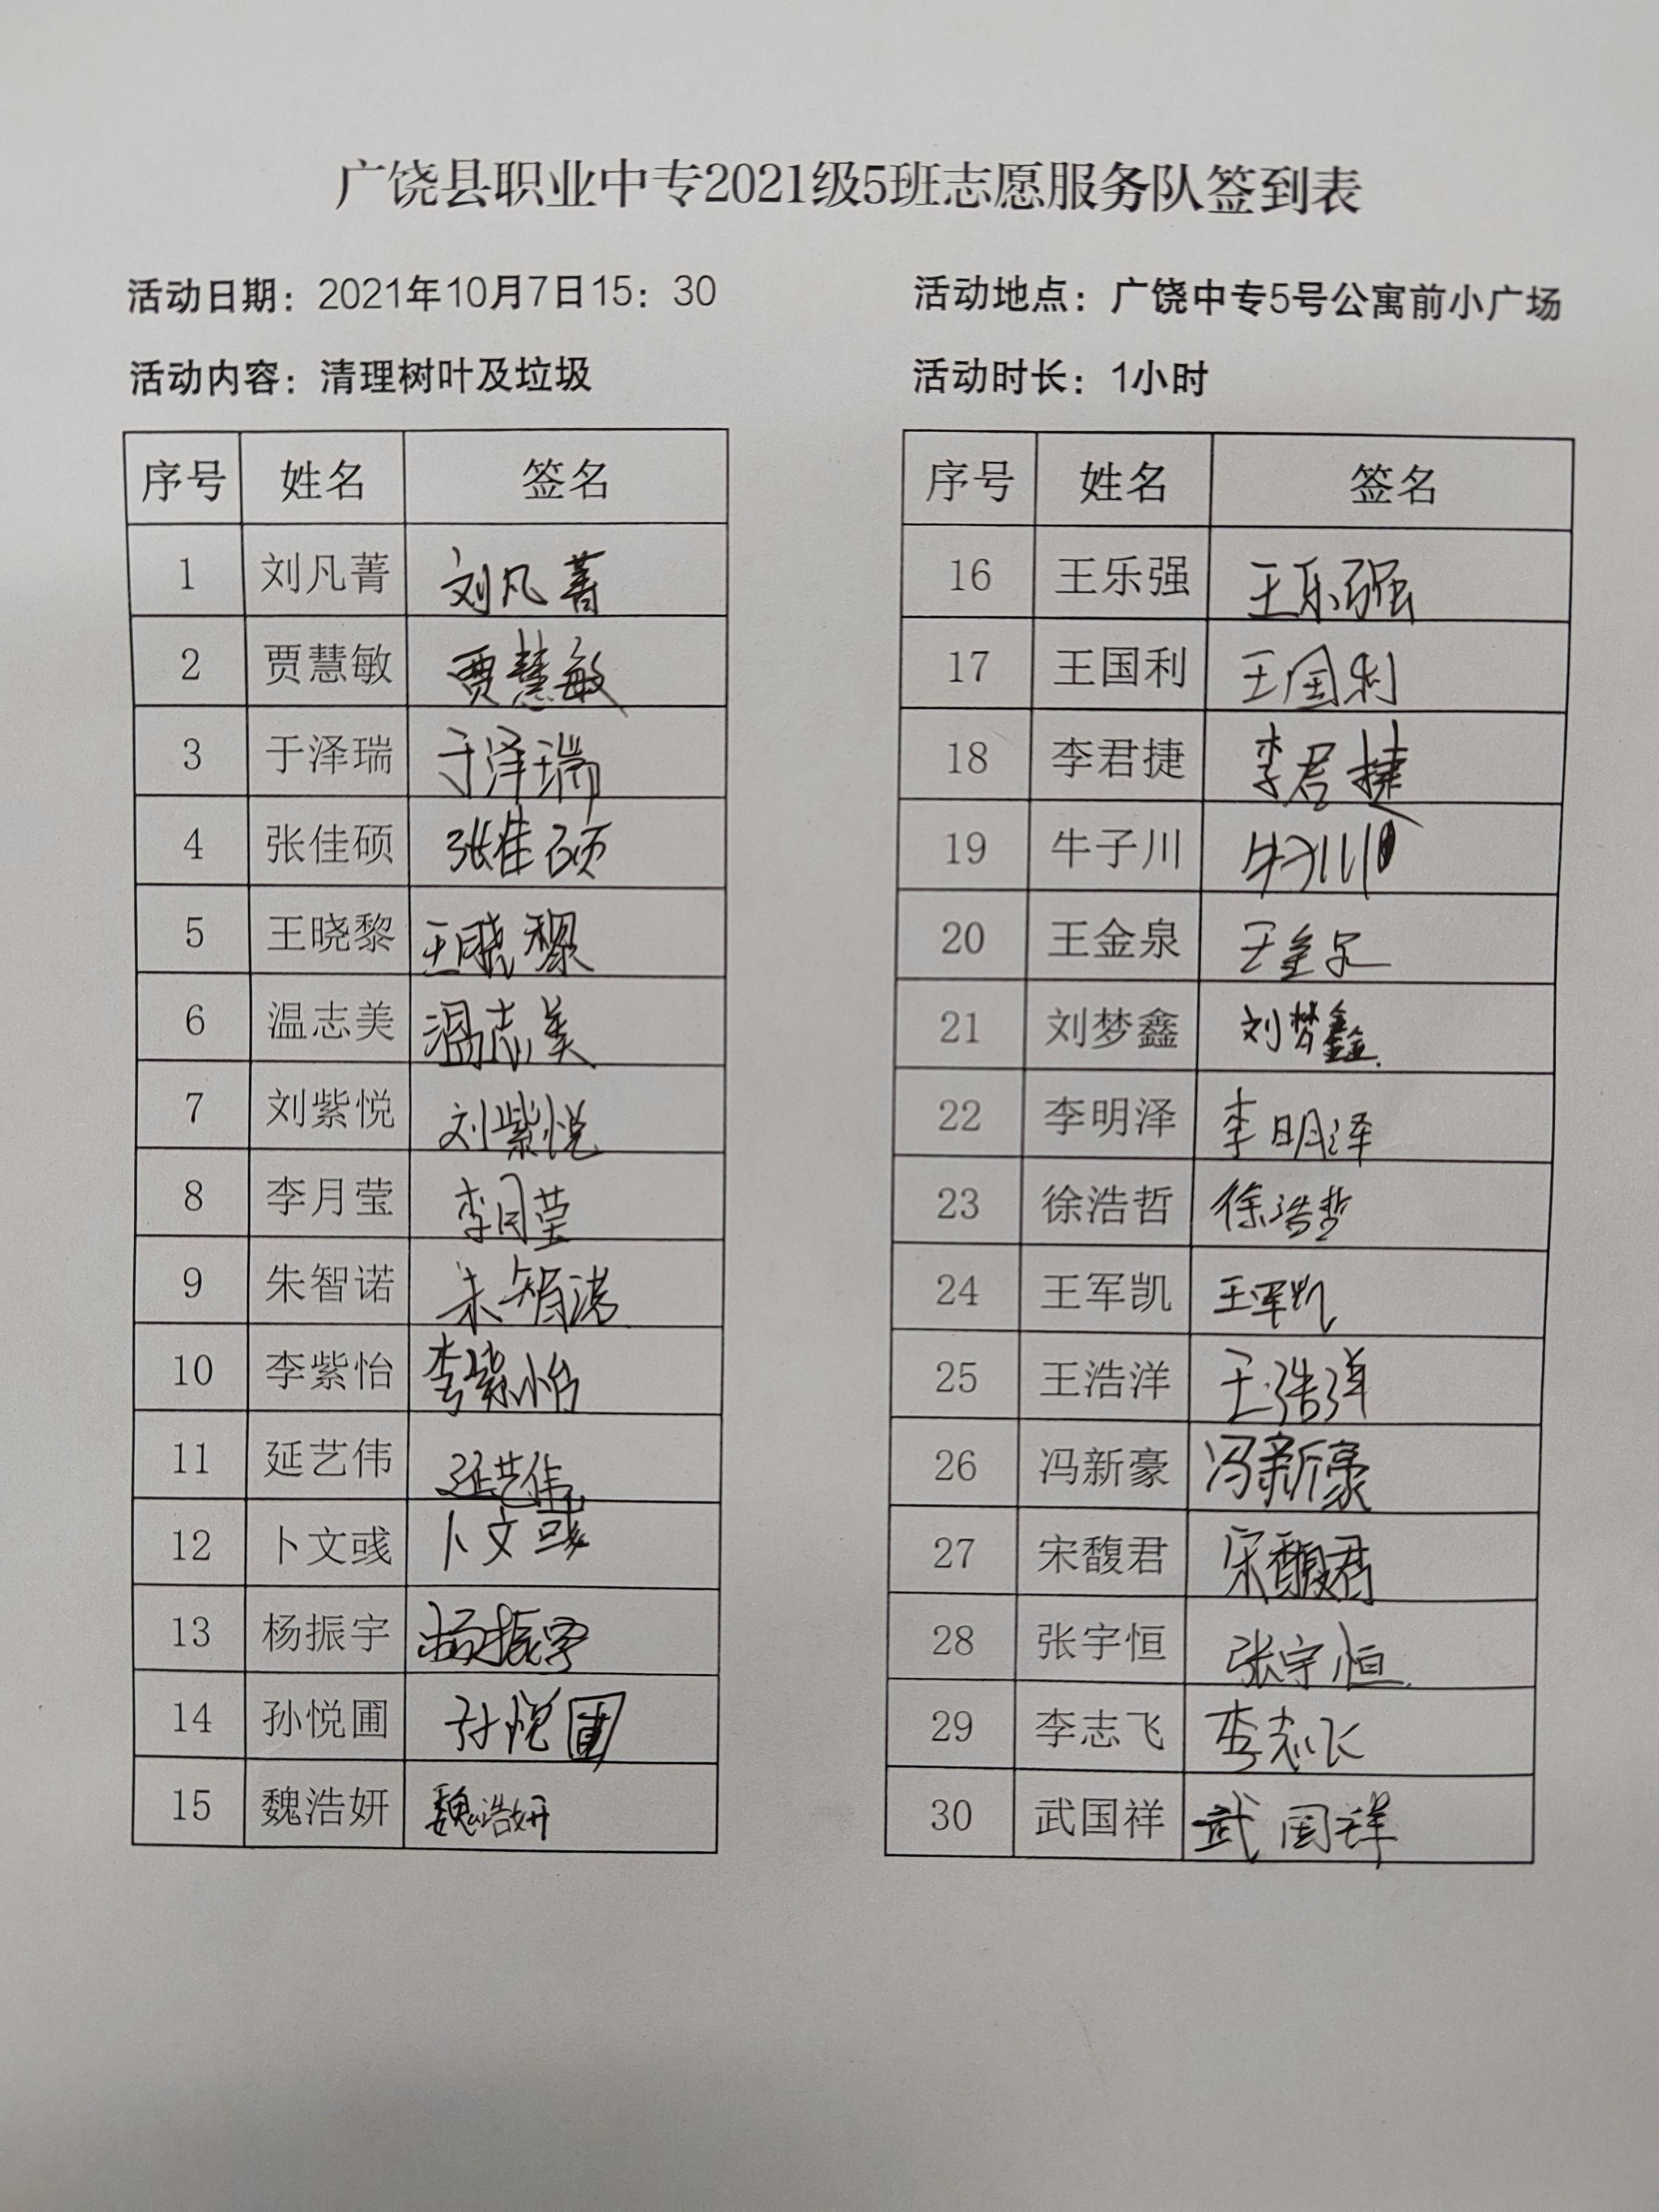 广饶县职业中专2021级5班志愿服务队签到表
活动日期：2021年10月7日15：30 活动地点：广饶中专5号公寓前小广场
活动内容：清理树叶及垃圾 活动时长：1小时
序号 姓名 签名 序号 姓名 签名
1 刘凡菁 刘凡菁 16 王乐强 王乐强
2 贾慧敏 贾慧敏 17 王国利 王国利
3 于泽瑞 于泽瑞 18 李君捷 李君捷
4 张佳硕 张佳硕 19 牛子川 牛子川
5 王晓黎 王晓黎 20 王金泉 王金泉
6 温志美 温志美 21 刘梦鑫 刘梦鑫
7 刘紫悦 刘紫悦 22 李明泽 李明泽
8 李月莹 李月莹 23 徐浩哲 徐浩哲
9 朱智诺 朱智诺 24 王军凯 王军凯
10 李紫怡 李紫怡 25 王浩洋 王浩洋
11 延艺伟 延艺伟 26 冯新豪 冯新豪
12 卜文彧 卜文彧 27 宋馥君 宋馥君
13 杨振宇 杨振宇 28 张宇恒 张宇恒
14 孙悦圃 孙悦圃 29 李志飞 李志飞
15 魏浩妍 魏浩妍 30 武国祥 武国祥